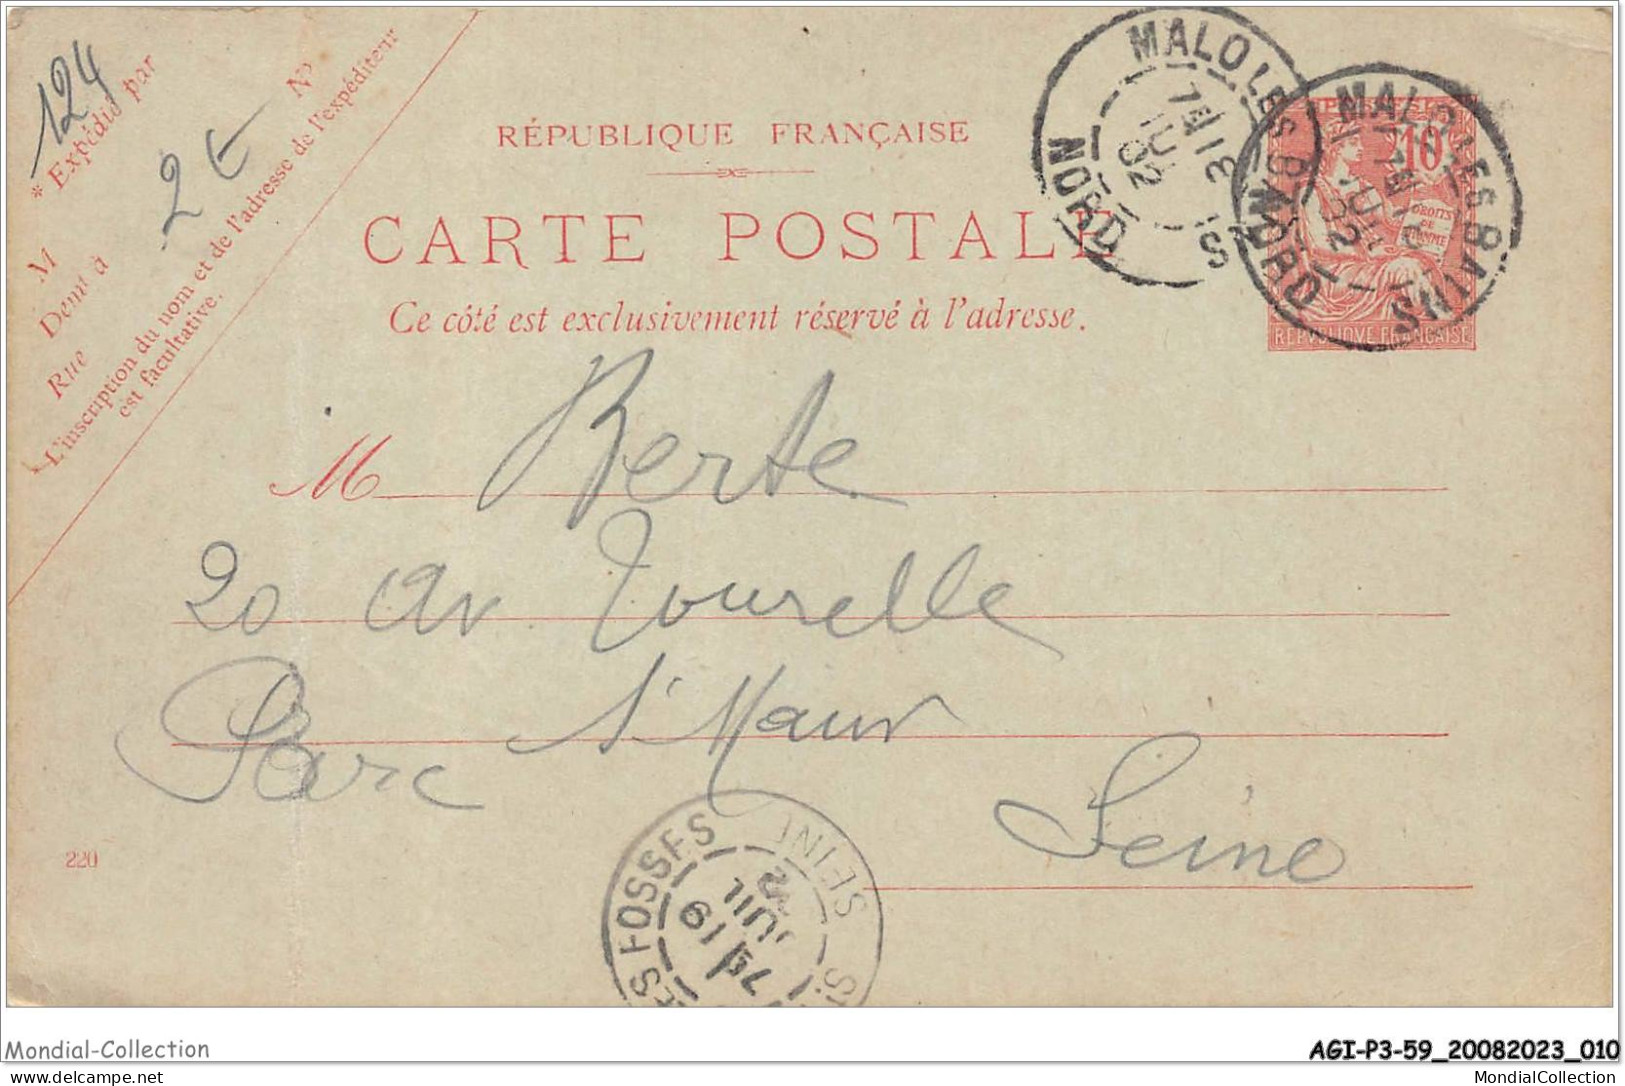 124
* Expédié par
2 €
M
Demt à
Rue
N°
L'inscription du nom et de l'adresse de l'expéditeur
est facultative.
RÉPUBLIQUE FRANÇAISE
CARTE POSTALE
Ce côté est exclusivement réservé à l'adresse.
MALO LES BAINS
NORD
18
JUIL
02
POSTES
10
DROITS
DE
L'HOMME
REPVBLIQVE FRANÇAISE
MALO LES BAINS
NORD
JUIL
02
M Berte
20 Av Tourelle
Parc St Maur
Seine
220
LES FOSSES
SEINE
19
JUIL
Mondial-Collection
AGI-P3-59_20082023_010
delcampe.net
MondialCollection